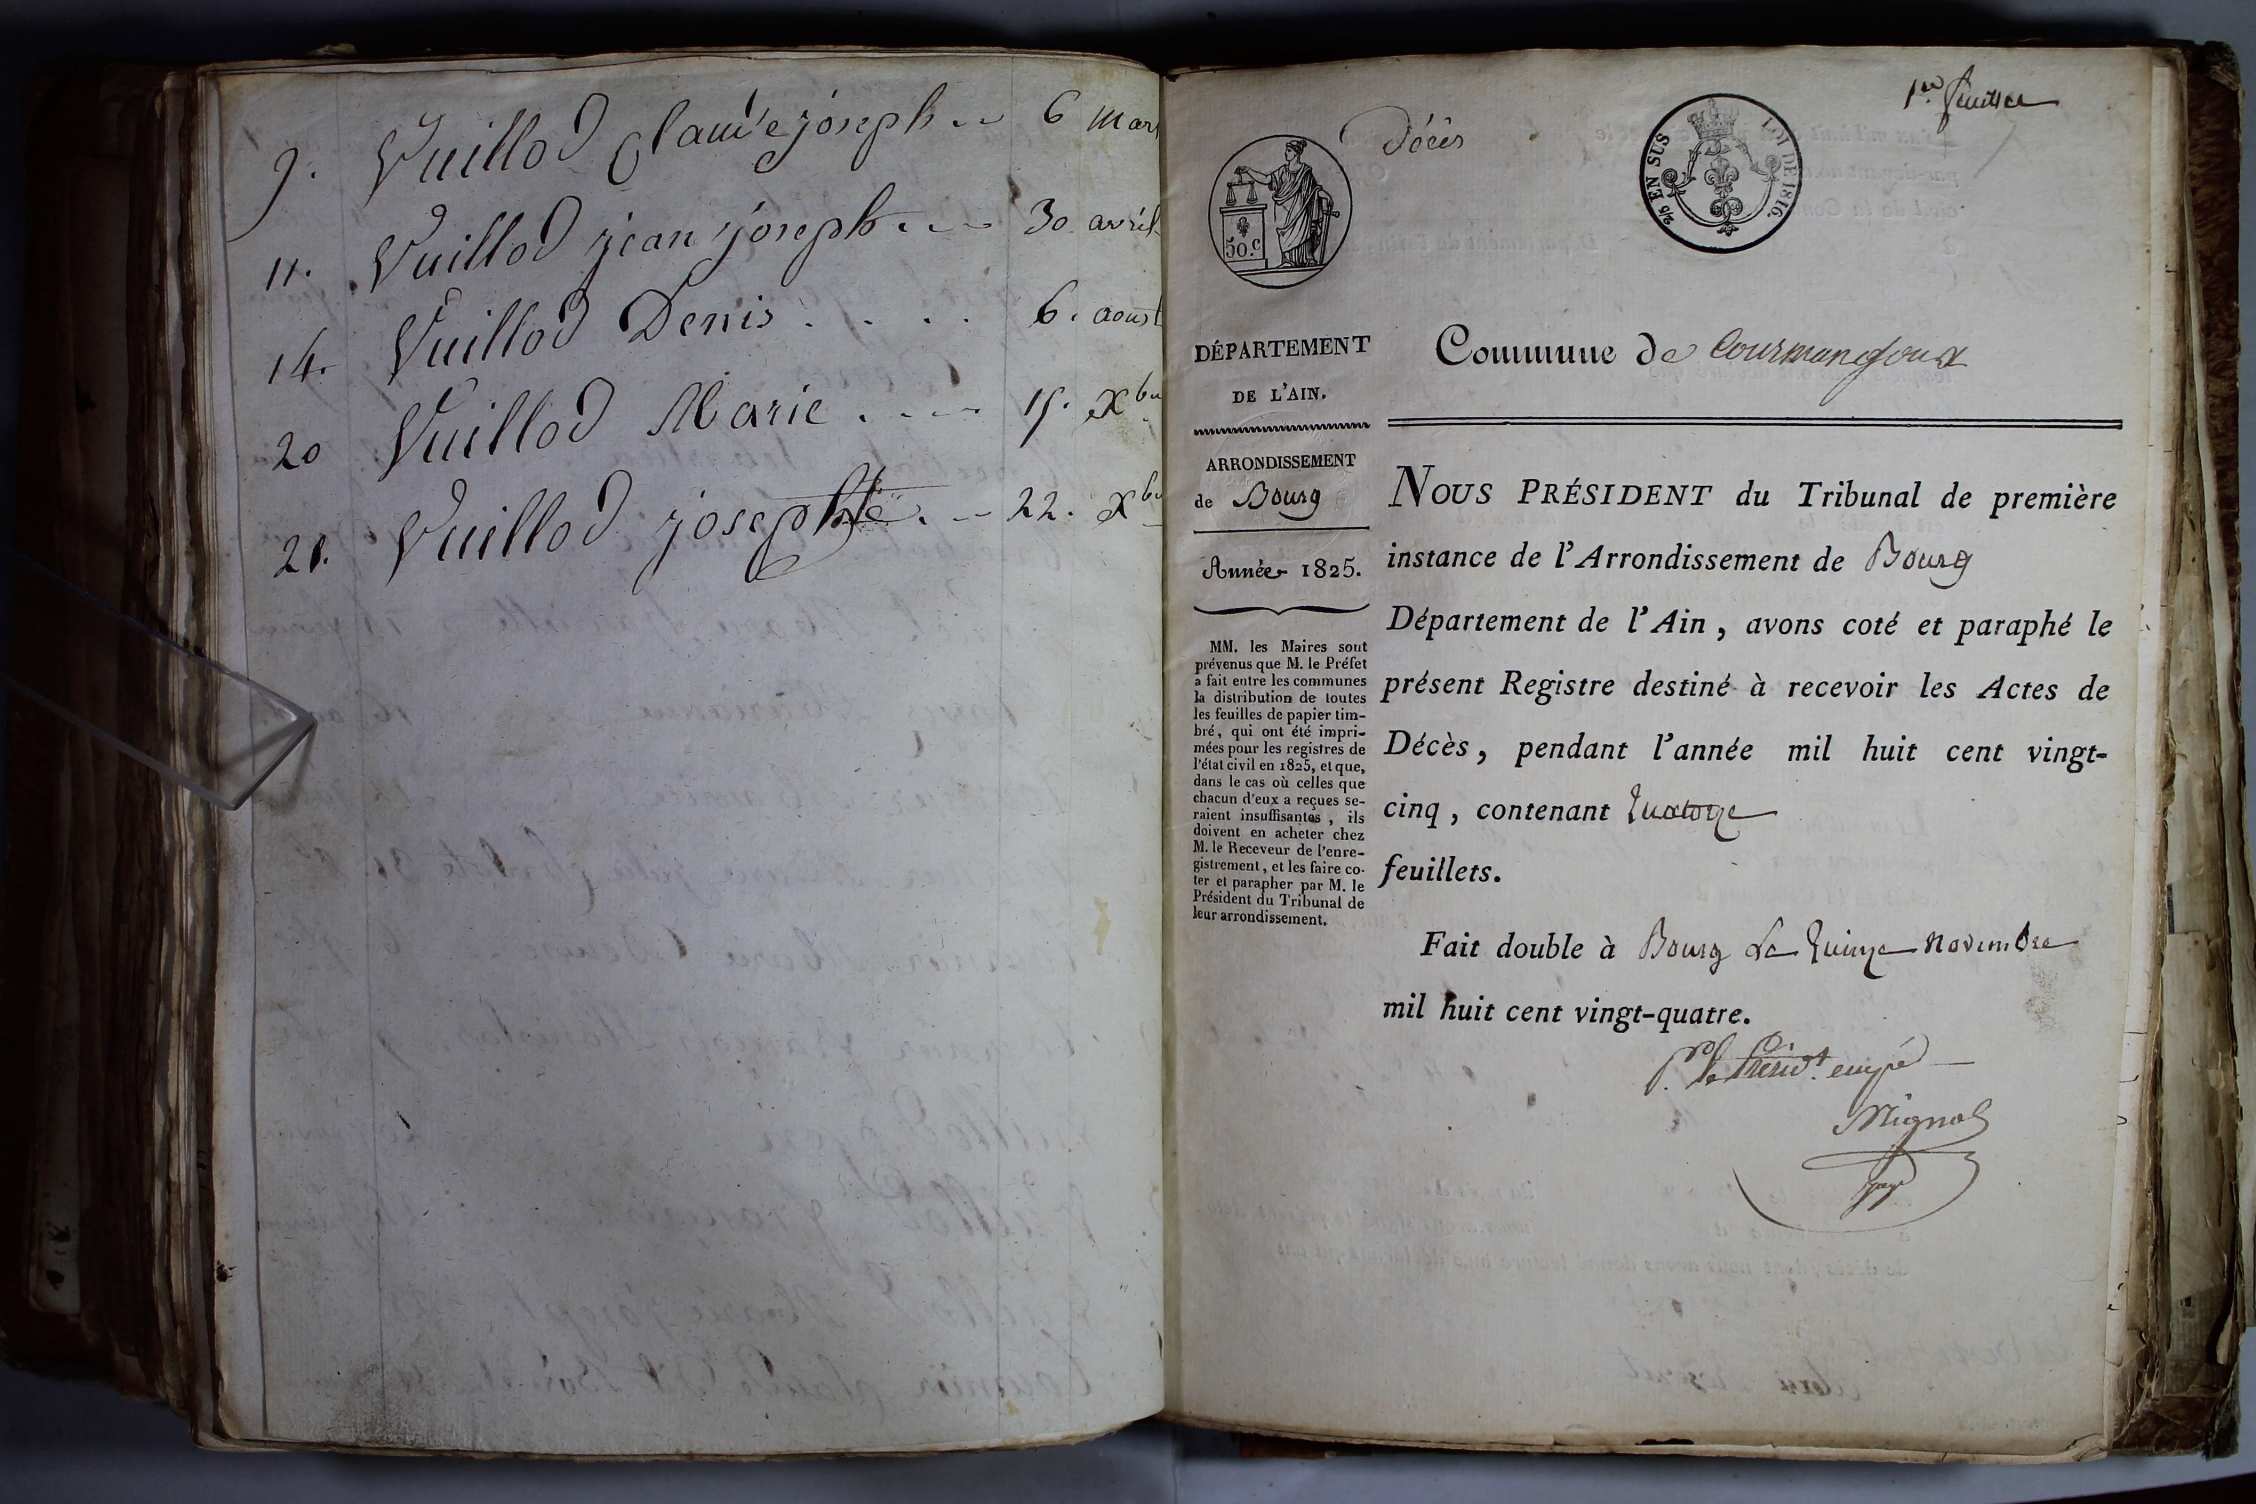 9. Vuillod Claude joseph .. 6 mars
11. Vuillod jean joseph ... 30 avril
14. Vuillod Denis . . . . 6. aoust
20 Vuillod Marie .... 15. Xbre
21. Vuillod josephte . .. 22. Xbre
1er feuillet
Décès
2/5 EN SUS
LOI DE 1816.
50.c
DÉPARTEMENT
DE L'AIN.
ARRONDISSEMENT
de Bourg
Année 1825.
MM. les Maires sont
prévenus que M. le Préfet
a fait entre les communes
la distribution de toutes
les feuilles de papier tim-
bré, qui ont été impri-
mées pour les registres de
l'état civil en 1825, et que,
dans le cas où celles que
chacun d'eux a reçues se-
raient insuffisantes, ils
doivent en acheter chez
M. le Receveur de l'enre-
gistrement, et les faire co-
ter et parapher par M. le
Président du Tribunal de
leur arrondissement.
Commune de Courmangoux
NOUS PRÉSIDENT du Tribunal de première
instance de l'Arrondissement de Bourg
Département de l'Ain, avons coté et paraphé le
présent Registre destiné à recevoir les Actes de
Décès, pendant l'année mil huit cent vingt-
cinq, contenant quatorze
feuillets.
Fait double à Bourg Le quinze novembre
mil huit cent vingt-quatre.
Pr le Présidt. empé
Mignot
juge